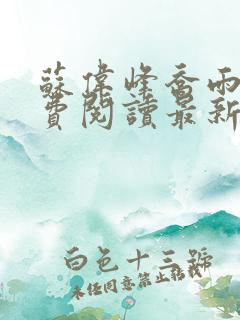 蘇偉峰喬雨
費閱讀最新
白色十三號
未經同意禁止轉載